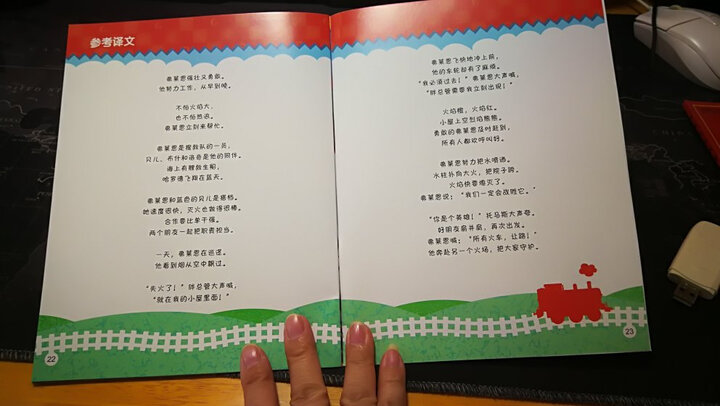 参考译文
弗莱恩强壮又勇敢。
他努力工作，从早到晚。
不怕火焰大，
也不怕热浪。
弗莱恩立刻来帮忙。
弗莱恩是搜救队的一员，
贝儿、布什和洛奇是他的同伴。
海上有艘救生船，
哈罗德飞翔在蓝天。
弗莱恩和蓝色的贝儿是搭档。
她速度很快，灭火也做得很棒。
合作要比单干强。
两个朋友一起把职责担当。
一天，弗莱恩在巡逻。
他看到烟从空中飘过。
“失火了！”胖总管大声喊，
“就在我的小屋里面！”
22
弗莱恩飞快地冲上前，
他的车轮却有了麻烦。
“我必须过去！”弗莱恩大声喊，
“胖总管需要我立刻出现！”
火焰橙，火焰红。
小屋上空烈焰熊熊。
勇敢的弗莱恩及时赶到，
所有人都欢呼叫好。
弗莱恩努力把水喷洒。
水柱扑向大火，把院子跨。
火焰快要熄灭了。
弗莱恩说：“我们一定会战胜它。”
“你是个英雄！”托马斯大声夸。
好朋友肩并肩，再次出发。
弗莱恩喊：“所有火车，让路！”
他奔赴另一个火场，把大家守护。
23